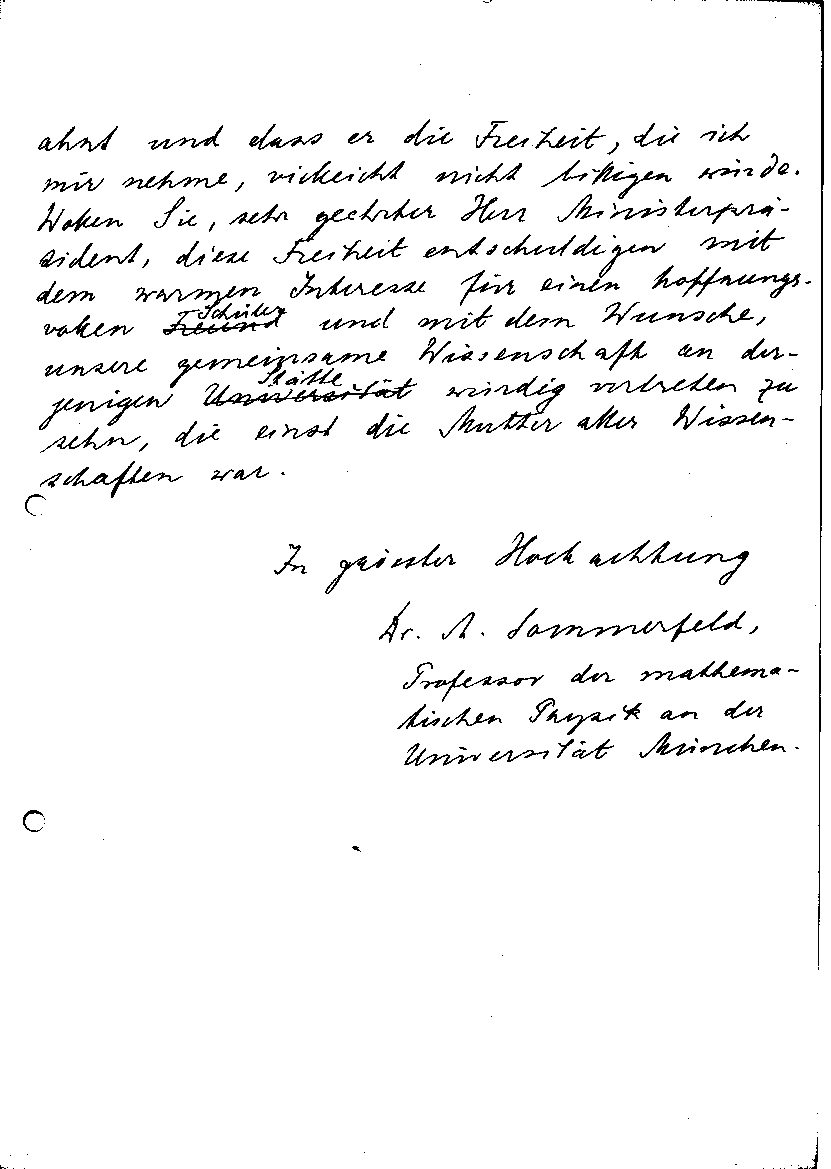 ahnt und dass er die Freiheit, die ich
mir nehme, vielleicht nicht billigen würde.
Wollen Sie, sehr geehrter Herr Ministerprä-
sident, diese Freiheit entschuldigen mit
dem warmen Interesse für einen hoffnungs-
Schüler
vollen Freund und mit dem Wunsche,
unsere gemeinsame Wissenschaft an der-
Stätte
jenigen Universität würdig vertreten zu
sehn, die einst die Mutter aller Wissen-
schaften war.
In grösster Hochachtung
Dr. A. Sommerfeld,
Professor der mathema-
tischen Physik an der
Universität München.